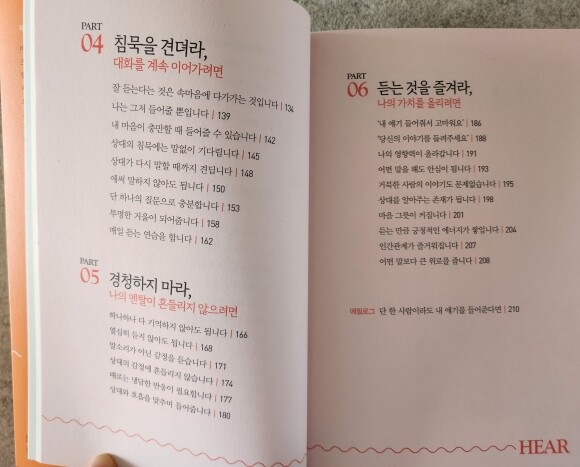 PART
04 침묵을 견뎌라,
대화를 계속 이어가려면
잘 듣는다는 것은 속마음에 다가가는 것입니다 | 134
나는 그저 들어줄 뿐입니다 | 139
내 마음이 충만할 때 들어줄 수 있습니다 | 142
상대의 침묵에는 말없이 기다립니다 | 145
상대가 다시 말할 때까지 견딥니다 | 148
애써 말하지 않아도 됩니다 | 150
단 하나의 질문으로 충분합니다 | 153
투명한 거울이 되어줍니다 | 158
매일 듣는 연습을 합니다 | 162
PART
05 경청하지 마라,
나의 멘탈이 흔들리지 않으려면
하나하나 다 기억하지 않아도 됩니다 | 166
열심히 듣지 않아도 됩니다 | 168
말소리가 아닌 감정을 듣습니다 | 171
상대의 감정에 흔들리지 않습니다 | 174
때로는 냉담한 반응이 필요합니다 | 177
상대와 호흡을 맞추며 들어줍니다 | 180
PART
06 듣는 것을 즐겨라,
나의 가치를 올리려면
'내 얘기 들어줘서 고마워요' | 186
'당신의 이야기를 들려주세요' | 188
나의 영향력이 올라갑니다 | 191
어떤 말을 해도 안심이 됩니다 | 193
거북한 사람의 이야기도 문제없습니다 | 195
상대를 알아주는 존재가 됩니다 | 198
마음 그릇이 커집니다 | 201
듣는 만큼 긍정적인 에너지가 쌓입니다 | 204
인간관계가 즐거워집니다 | 207
어떤 말보다 큰 위로를 줍니다 | 208
에필로그 단 한 사람이라도 내 얘기를 들어준다면 | 210
HEAR